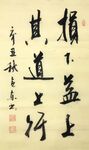 損下益上
其道上行
辛丑秋